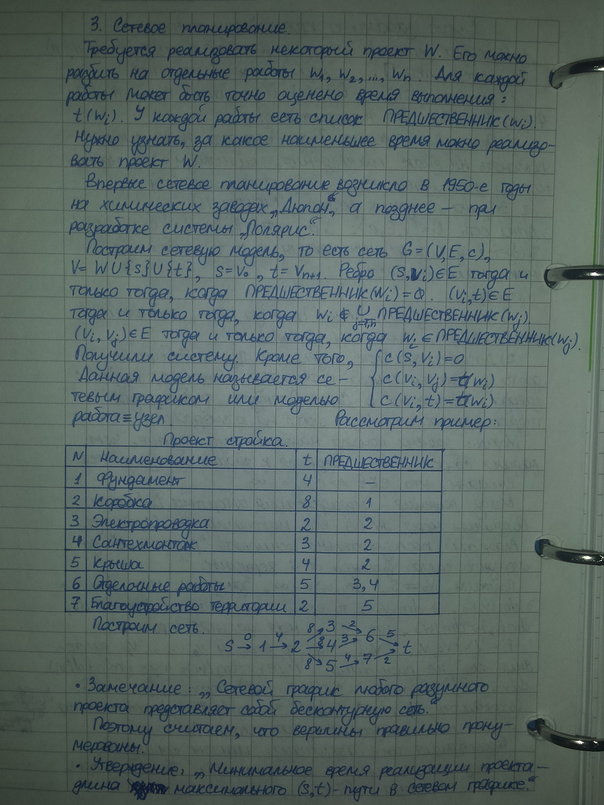 3. Сетевое планирование.
Требуется реализовать некоторый проект W. Его можно
разбить на отдельные работы w₁, w₂, ..., wₙ. Для каждой
работы может быть точно оценено время выполнения:
t(wᵢ). У каждой работы есть список ПРЕДШЕСТВЕННИК(wᵢ).
Нужно узнать, за какое наименьшее время можно реализо-
вать проект W.
Впервые сетевое планирование возникло в 1950-е годы
на химических заводах „Дюпон“, а позднее – при
разработке системы „Полярис“.
Построим сетевую модель, то есть сеть G=(V,E,c),
V= W∪{s}∪{t}, s=v₀, t=vₙ₊₁. Ребро (s,vᵢ)∈E тогда и
только тогда, когда ПРЕДШЕСТВЕННИК(wᵢ)=∅. (vᵢ,t)∈E
тогда и только тогда, когда wᵢ∉ ∪ j=1,n ПРЕДШЕСТВЕННИК(wⱼ).
(vᵢ,vⱼ)∈E тогда и только тогда, когда wᵢ∈ПРЕДШЕСТВЕННИК(wⱼ).
Получили систему. Кроме того, { c(s,vᵢ)=0
Данная модель называется се- c(vᵢ,vⱼ)=t(wᵢ)
тевым графиком или моделью c(vᵢ,t)=t(wᵢ)
работа≡узел Рассмотрим пример:
Проект стройка.
N Наименование t ПРЕДШЕСТВЕННИК
1 Фундамент 4 –
2 Коробка 8 1
3 Электропроводка 2 2
4 Сантехмонтаж 3 2
5 Крыша 4 2
6 Отделочные работы 5 3,4
7 Благоустройство территории 2 5
Построим сеть.
8 3 2
s 0→ 1 4→ 2 8 4 3 6 5 t
8 5 4 7 2
• Замечание: „Сетевой график любого разумного
проекта представляет собой бесконтурную сеть.“
Поэтому считаем, что вершины правильно прону-
мерованы.
• Утверждение: „Минимальное время реализации проекта –
длина максимального (s,t)-пути в сетевом графике.“